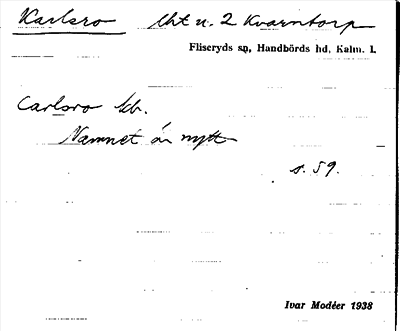 Karlsro lht u. 2 Kvarntorp
Fliseryds sp, Handbörds hd, Kalm. l.
Carlsro kb.
Namnet är nytt
s. 59.
Ivar Modéer 1938